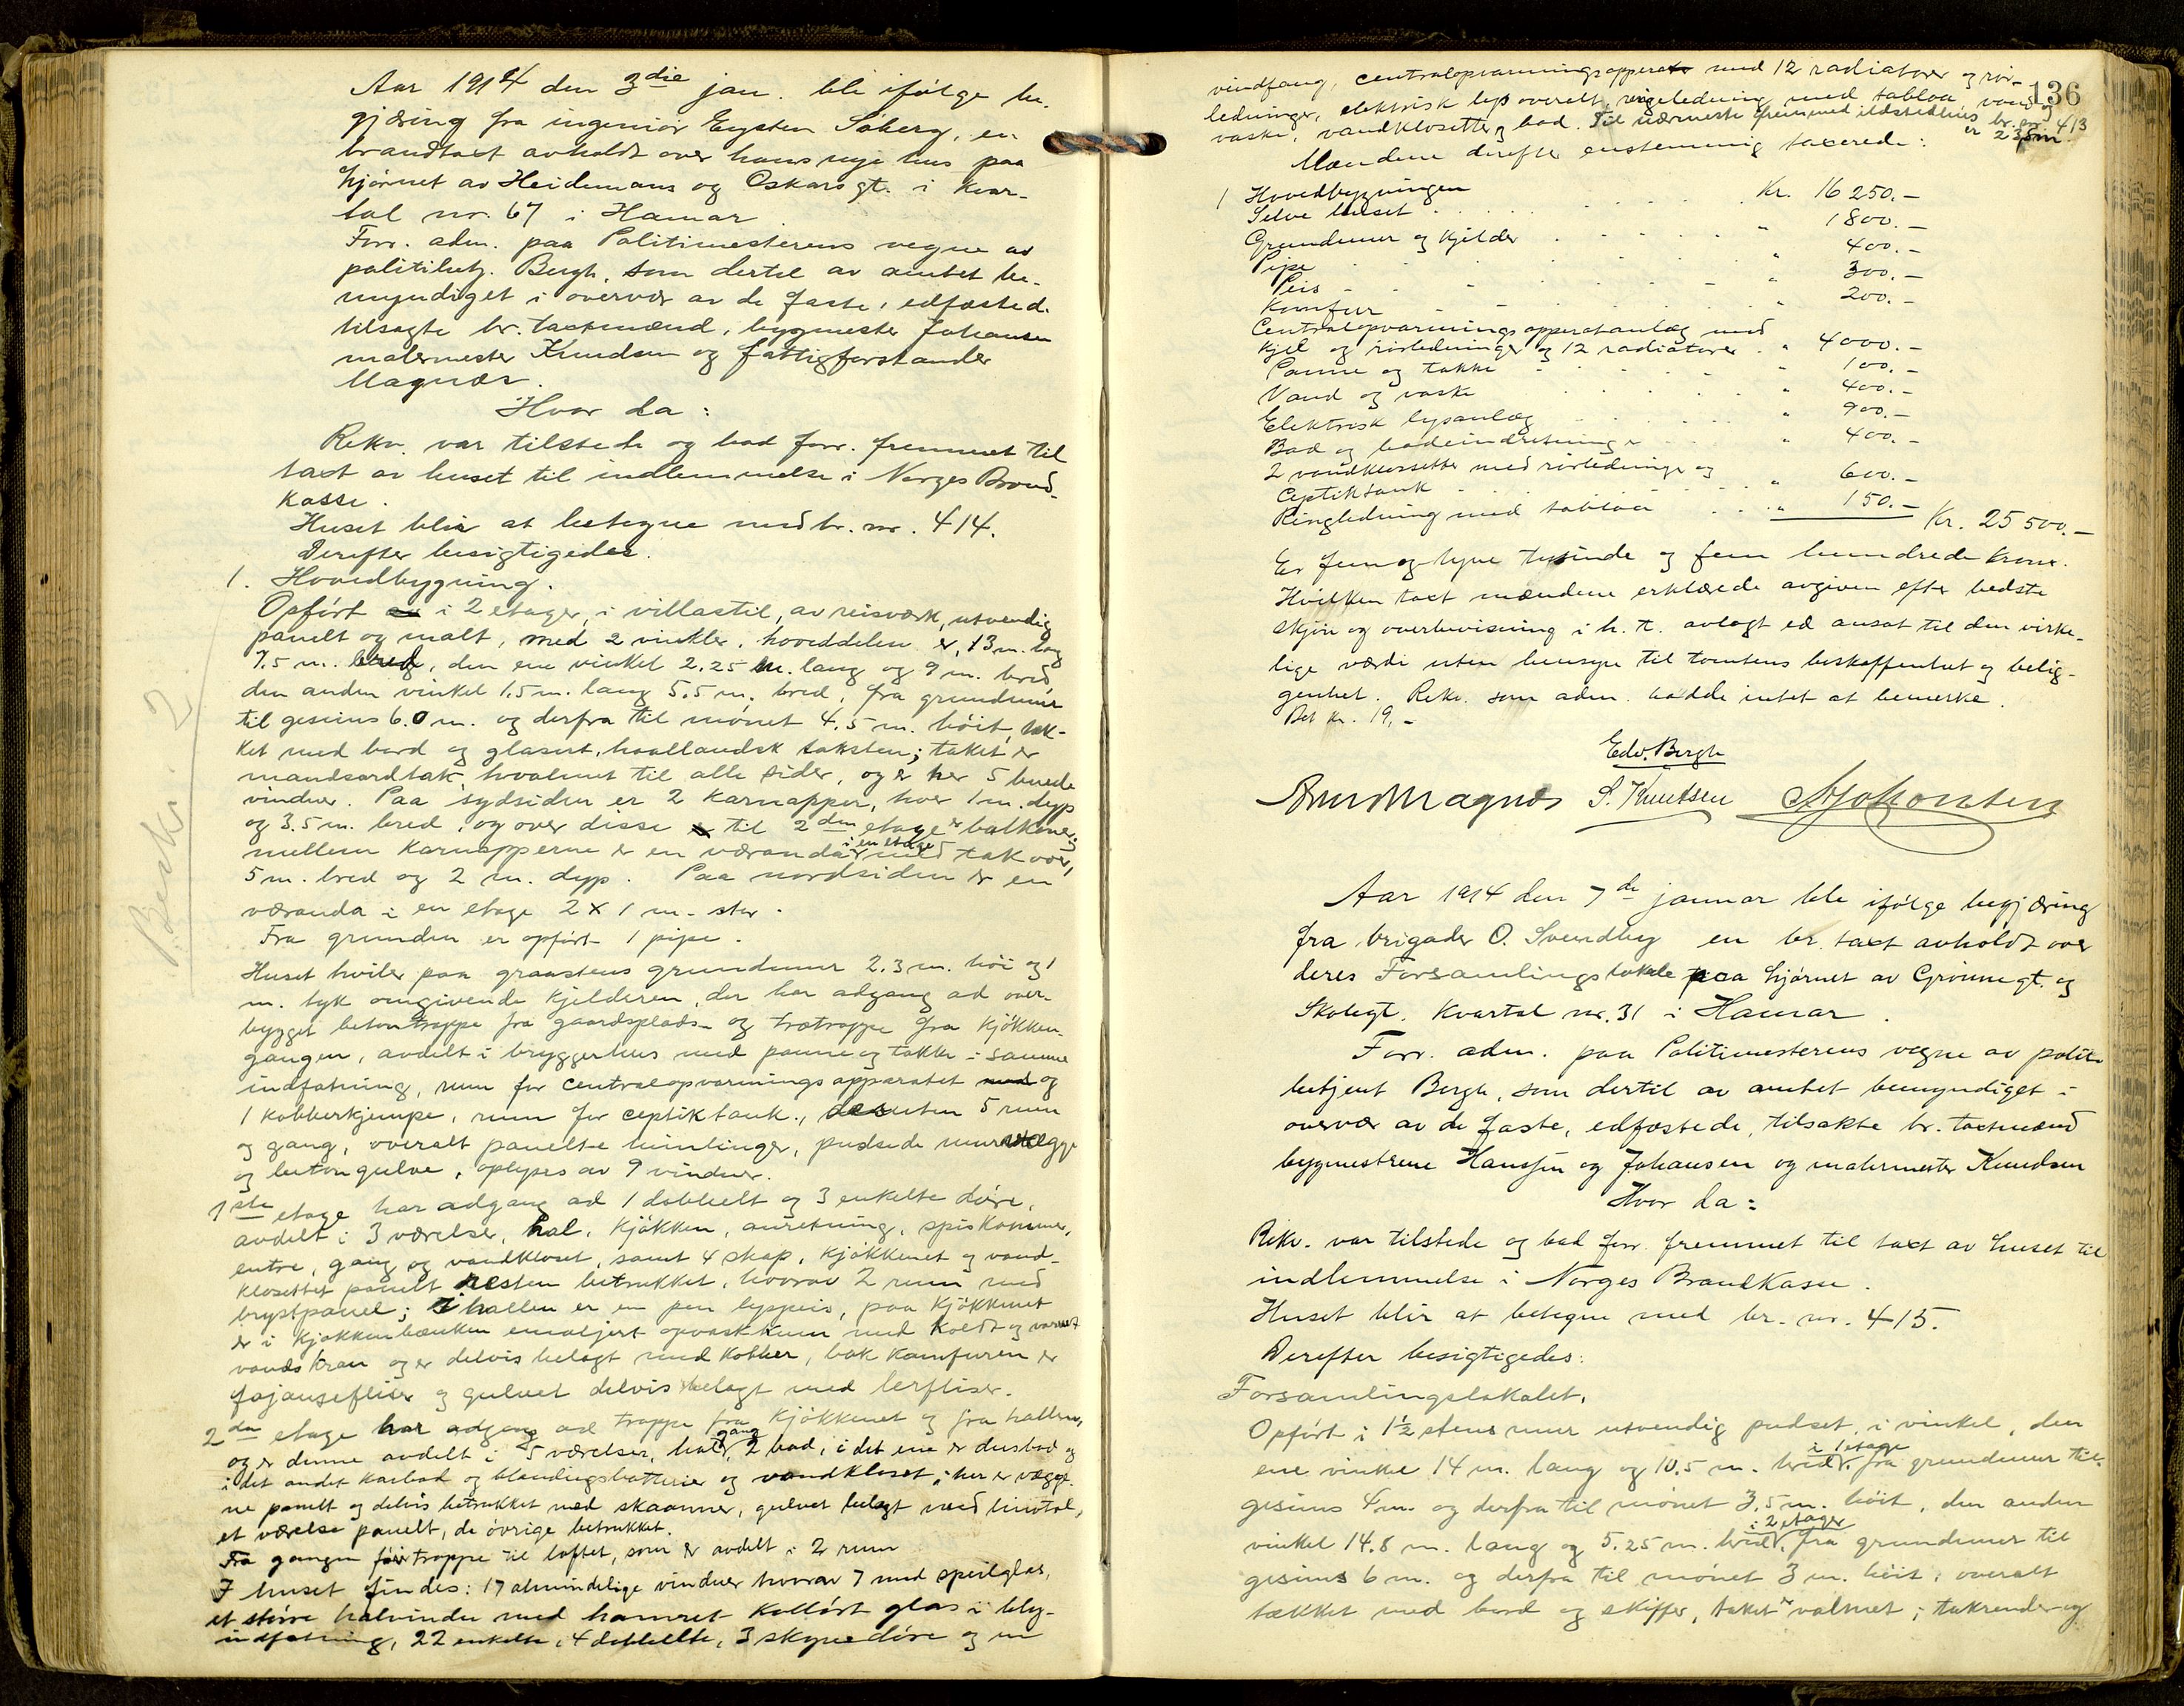 Aar 1914 den 3die jan. ble ifølge be-
gjæring fra ingeniør Eysten Søberg, en
brandtaxt avholdt over hans nye hus paa
hjørnet av Heidemans og Oskarsgt. i kvar-
tal nr. 67 i Hamar.
Forr. adm. paa Politimesterens vegne av
politibetj. Bergh, som dertil av amtet be-
myndiget i overvær av de faste, edfæstede
tilsagte br. taxtmænd, bygmester Johansen
malermester Knudsen og fattigforstander
Magnæs.
Hvor da:
Rekv. var tilstede og bad forr. fremmet til
taxt av huset til indlemmelse i Norges Brand-
kasse.
Huset blir at betegne med br. nr. 414.
Derefter besigtigedes.
1. Hovedbygning.
Opført i 2 etager, i villastil, av reisværk, utvendig
panelt og malt, med 2 vinkler, hoveddelen er, 13 m. lang
7.5 m. bred, den ene vinkel 2.25 m. lang og 9 m. bred
den anden vinkel 1.5 m. lang 5.5 m. bred, fra grundmur
til gesims 6.0 m. og derfra til mønet 4.5 m. høit, tæk-
ket med bord og glasert, haallandsk taksten; taket er
mandsardtak, hvalmet til alle sider, og er her 5 buede
vinduer. Paa sydsiden er 2 karnapper, hver 1 m. dyp
og 3.5 m. bred, og over disse til 2den etage er balkoner,
mellem karnapperne er en væranda i en etage med tak over,
5 m. bred og 2 m. dyp. Paa nordsiden er en
væranda i en etage 2 x 1 m. stor.
Fra grunden er opført 1 pipe.
Huset hviler paa graastens grundmur 2.3 m. høi og 1
m. tyk omgivende kjelderen, der har adgang ad over-
bygget betontrappe fra gaardsplads og trætrappe fra kjøkken-
gangen, avdelt i bryggerhus med panne og takke i samme
indfatning, rum for centralopvarmingsapparatet og
1 kobberkjempe, rum for ceptiktank, desuten 5 rum
og gang, overalt panelte himlinger, pudsede murvægge
og betongulve, oplyses av 9 vinduer.
1ste etage har adgang ad 1 dobbelt og 3 enkelte døre,
avdelt i 3 værelser, hal, kjøkken, anretning, spiskammer,
entre, gang og vandkloset, samt 4 skap, kjøkkenet og vand-
klosettet panelt resten betrukket, hvorav 2 rum med
brystpanel; i hallen er en pen lyspeis, paa kjøkkenet
er i kjøkkenbænken emaljert opvaskkum med koldt og varmt
vandskran og er delvis belagt med kobber, bak komfuren er
fajansefliser og gulvet delvis belagt med lerfliser.
2den etage har adgang ad trappe fra kjøkkenet og fra hallen,
og er denne avdelt i 5 værelser, hal, gang 2 bad, i det ene er dusbad og
i det andet karbad og blandingsbatterier og vandkloset, her er vægge-
ne panelt og delvis betrukket med skaanner, gulvet belagt med linotol,
et værelse panelt, de øvrige betrukket.
Fra gangen fører trappe til loftet, som er avdelt i 2 rum
I huset findes: 17 almindelige vinduer hvorav 7 med speilglas,
et større halvindu med hamret kollørt glas i bly-
indfatning, 22 enkelte, 4 dobbelte, 3 skyvedøre og en
Beskr. 2
136
vindfang, centralopvarmingsapperat med 12 radiatorer og rør-
ledninger, elektrisk lys overalt, ringeledning med tabloa, vand og
vaske, vandklosetter, bad. Til nærmeste fremmed ildstedshus br. nr. 413
er 23,5 m.
Mændene derefter enstemmig taxerede:
1 Hovedbygningen
Selve huset . . . . Kr. 16 250.-
Grundmur og kjelder . . . " 1800.-
Pipe . . . " 400.-
Peis . . . " 300.-
Komfur . . . " 200.-
Centralopvarmingsapparatanlæg med
kjel og rørledninger og 12 radiatorer . " 4000.-
Panne og takke . . . " 100.-
Vand og vaske . . . " 400.-
Elektrisk lysanlæg . . . " 900.-
Bad og badeindretninger . . . " 400.-
2 vandklosetter med rørledninger og
Ceptiktank . . . " 600.-
Ringledning med tabloa . . . " 150.- Kr. 25 500.-
Er fem og tyve tusinde og fem hundrede kroner.
Hvilken taxt mændene erklærede avgiven efter bedste
skjøn og overbevisning i h. t. avlagt ed ansat til den virke-
lige værdi uten hensyn til tomtens beskaffenhet og belig-
genhet. Rekv. som adm. hadde intet at bemerke.
Bet kr. 19,-
Edv. Bergh
Magnæs S. Knutsen A Johansen
Aar 1914 den 7de januar ble ifølge begjæring
fra brigader O. Svendby en br. taxt avholdt over
deres Forsamlingslokale paa hjørnet av Grønnegt. og
Skolegt. Kvartal nr. 31 i Hamar.
Forr. adm. paa Politimesterens vegne av politi-
betjent Bergh, som dertil av amtet bemyndiget i
overvær av de faste, edfæstede, tilsakte br. taxtmænd
bygmestrene Hanssen og Johansen og malermester Knudsen
Hvor da:
Rekv. var tilstede og bad forr. fremmet til taxt av huset til
indlemmelse i Norges Brandkasse.
Huset blir at betegne med br. nr. 415.
Derefter besigtigedes:
Forsamlingslokalet.
Opført i 1½ stens mur utvendig pudset, i vinkel, den
ene vinkel 14 m. lang og 10.5 m. bred i 1 etage, fra grundmur til
gesims 4 m. og derfra til mønet 3.5 m. høit, den anden
vinkel 14.8 m. lang og 5.25 m. bred i 2 etager, fra grundmur til
gesims 6 m. og derfra til mønet 3 m. høit, overalt
tækket med bord og skiffer, taket er valmet; takrender og